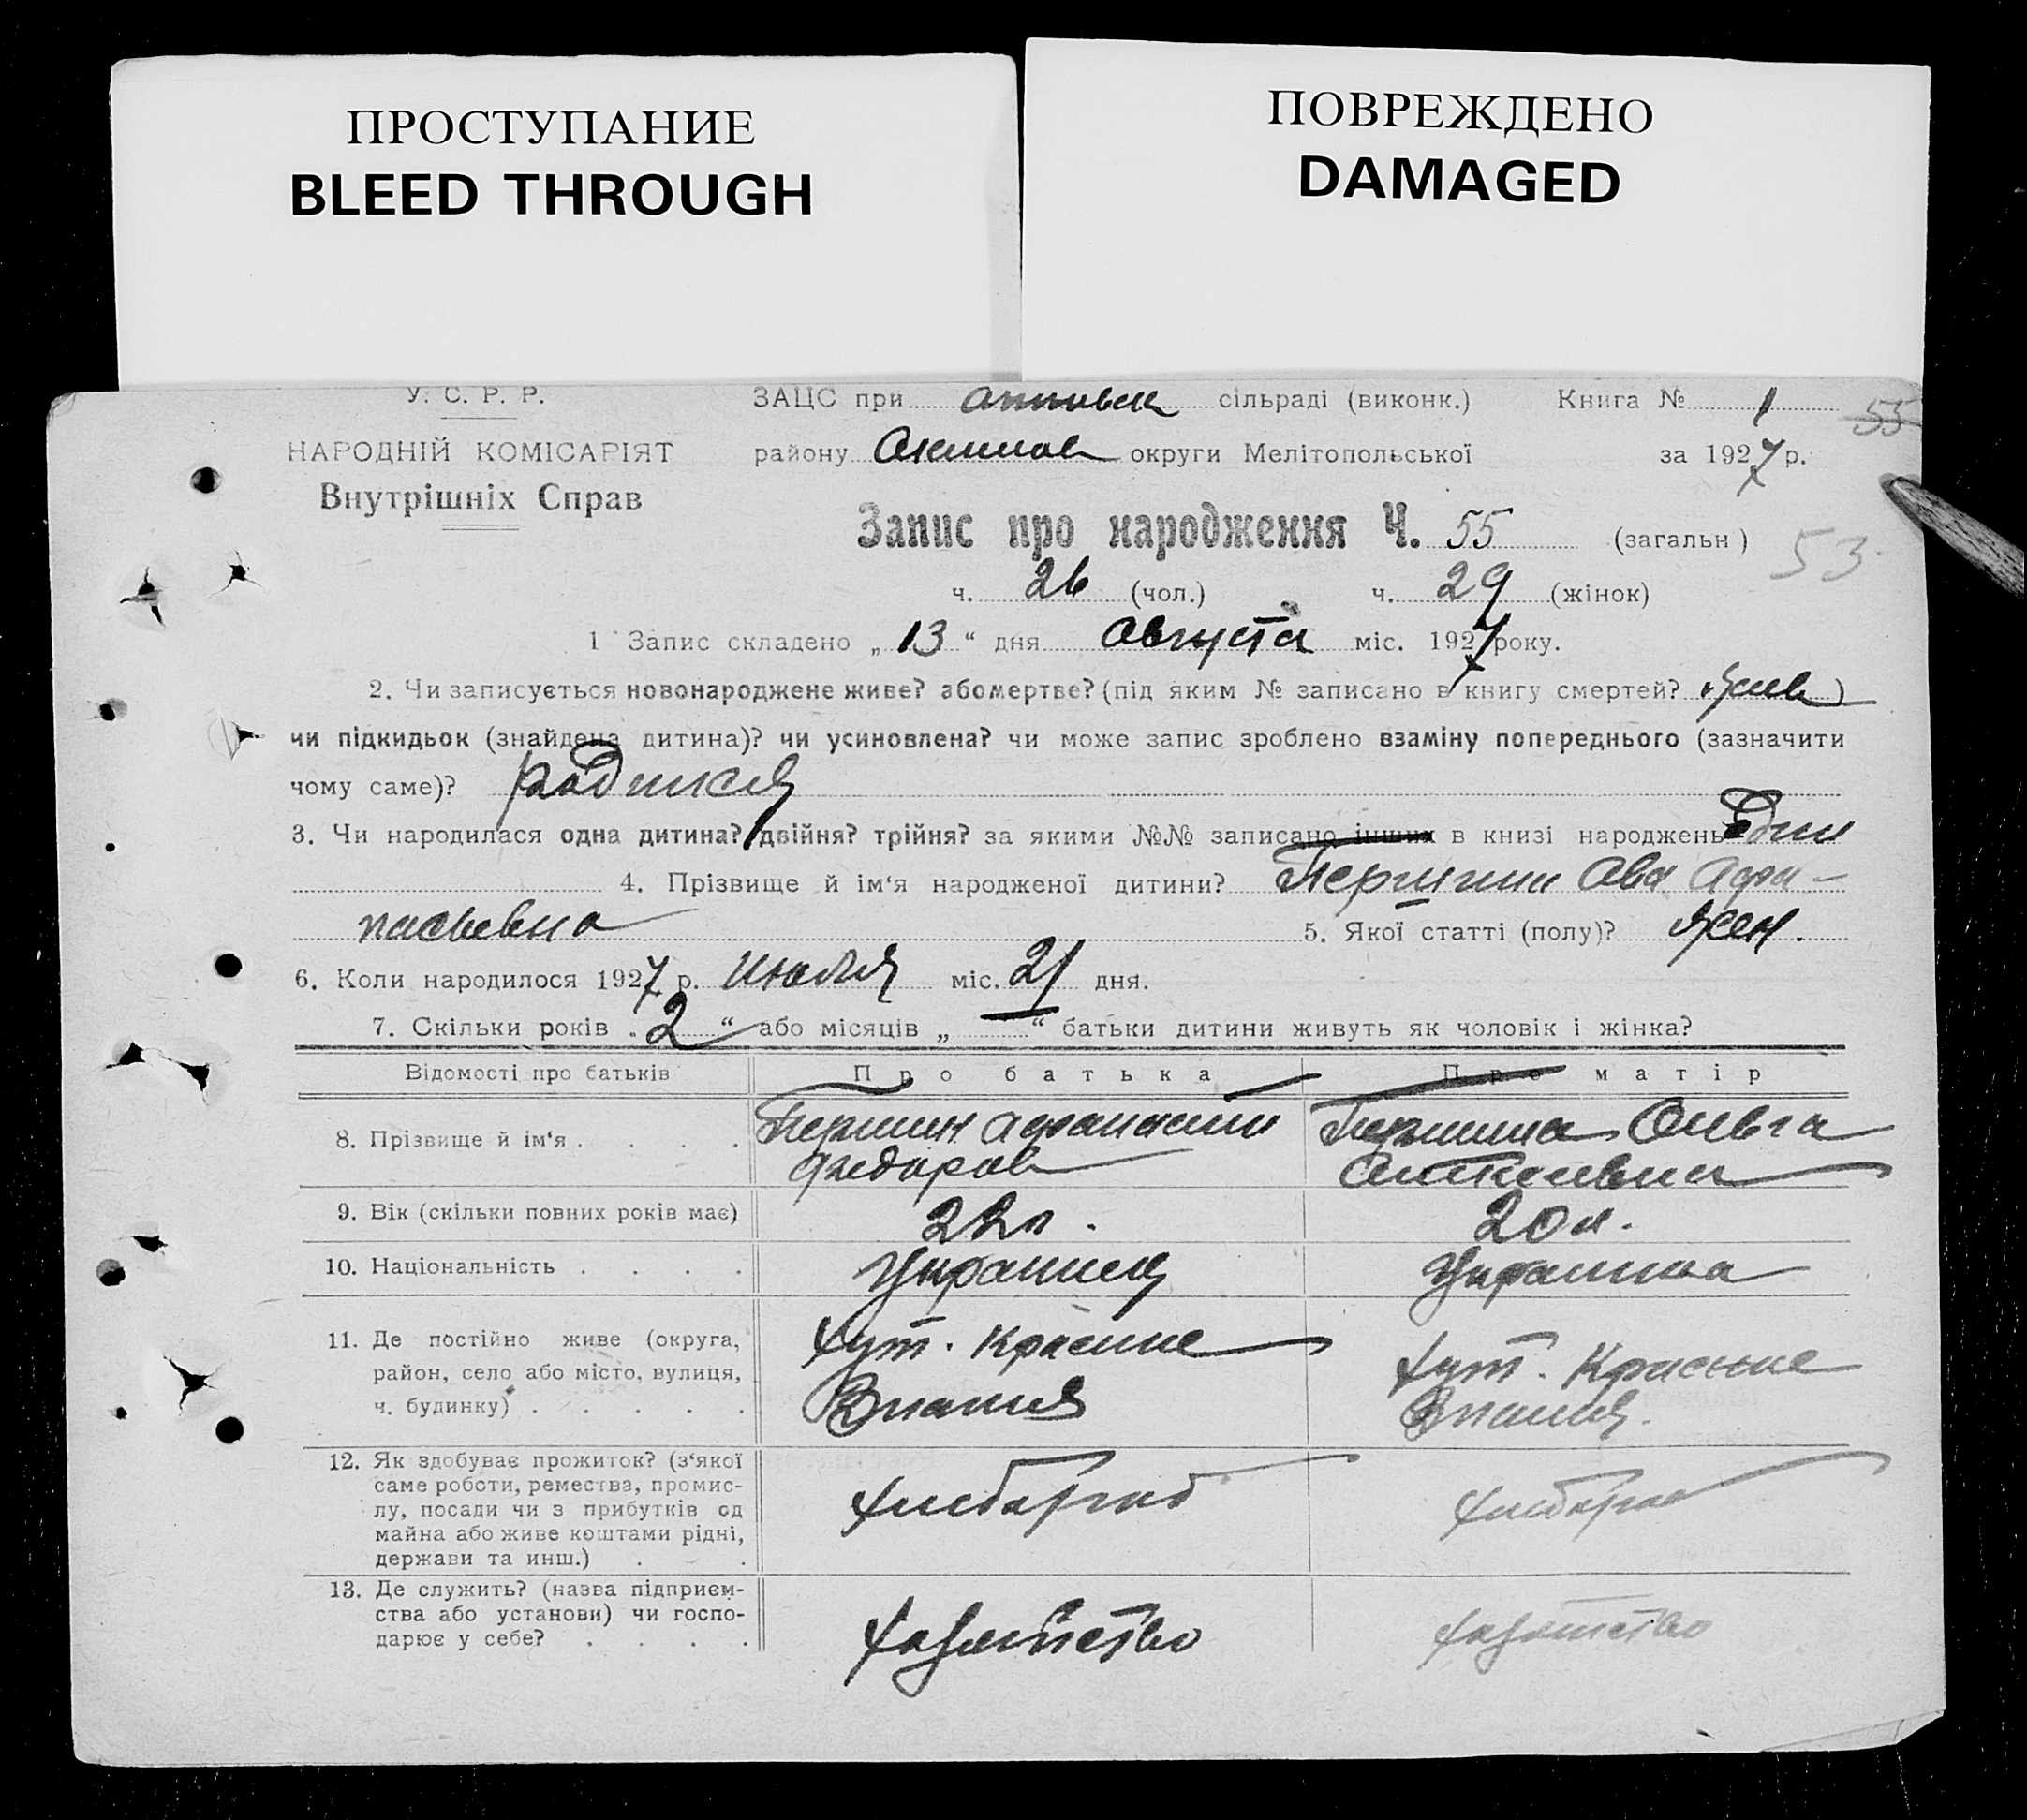 ПРОСТУПАНИЕ
BLEED THROUGH
ПОВРЕЖДЕНО
DAMAGED
У. С. Р. Р.
НАРОДНІЙ КОМІСАРІЯТ
Внутрішніх Справ
ЗАЦС при сільраді (виконк.) Книга № 1
55
району Акимов округи Мелітопольської за 1927 р.
Запис про народження Ч. 55 (загальн)
53
ч. 26 (чол.) ч. 29 (жінок)
1 Запис складено „13“ дня Августа міс. 1927 року.
2. Чи записується новонароджене живе? або мертве? (під яким № записано в книгу смертей? жив)
чи підкидьок (знайдена дитина)? чи усиновлена? чи може запис зроблено взаміну попереднього (зазначити
чому саме)? родился
3. Чи народилася одна дитина? двійня? трійня? за якими №№ записано інших в книзі народжень один
4. Прізвище й ім‘я народженої дитини? Першин Ава Афа-
насьевна 5. Якої статті (полу)? жен.
6. Коли народилося 1927 р. Июля міс. 21 дня.
7. Скільки років „2“ або місяців „—“ батьки дитини живуть як чоловік і жінка?
Відомості про батьків Про батька Про матір
8. Прізвище й ім‘я . . . . Першин Афанасий Першина Ольга
Федоров
9. Вік (скільки повних років має) 22л. 20л.
10. Національність . . . . Украинец Украинка
11. Де постійно живе (округа,
район, село або місто, вулиця,
ч. будинку) . . . . .
хут. Красные
Знамья
хут. Красные
Знамья.
12. Як здобуває прожиток? (з‘якої
саме роботи, ремества, промис-
лу, посади чи з прибутків од
майна або живе коштами рідні,
держави та инш.) . .
хлебороб
хлебороб
13. Де служить? (назва підприєм-
ства або установи) чи госпо-
дарює у себе? . . . .
хозяйство
хозяйство